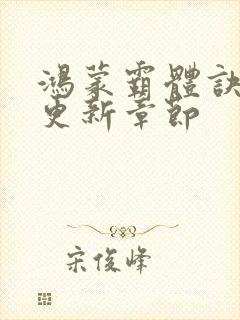 鴻蒙霸體訣
更新章節
宋俊峰